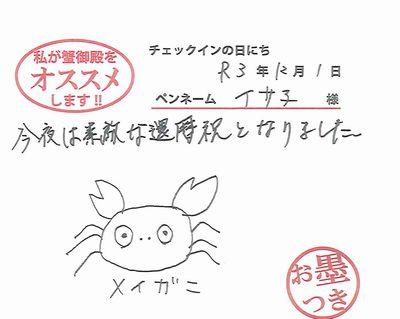 私が蟹御殿を
オススメ
します!!
チェックインの日にち
R3年12月1日
ペンネーム イサチ 様
今夜は素敵な還暦祝となりました
メイガニ
お墨
つき